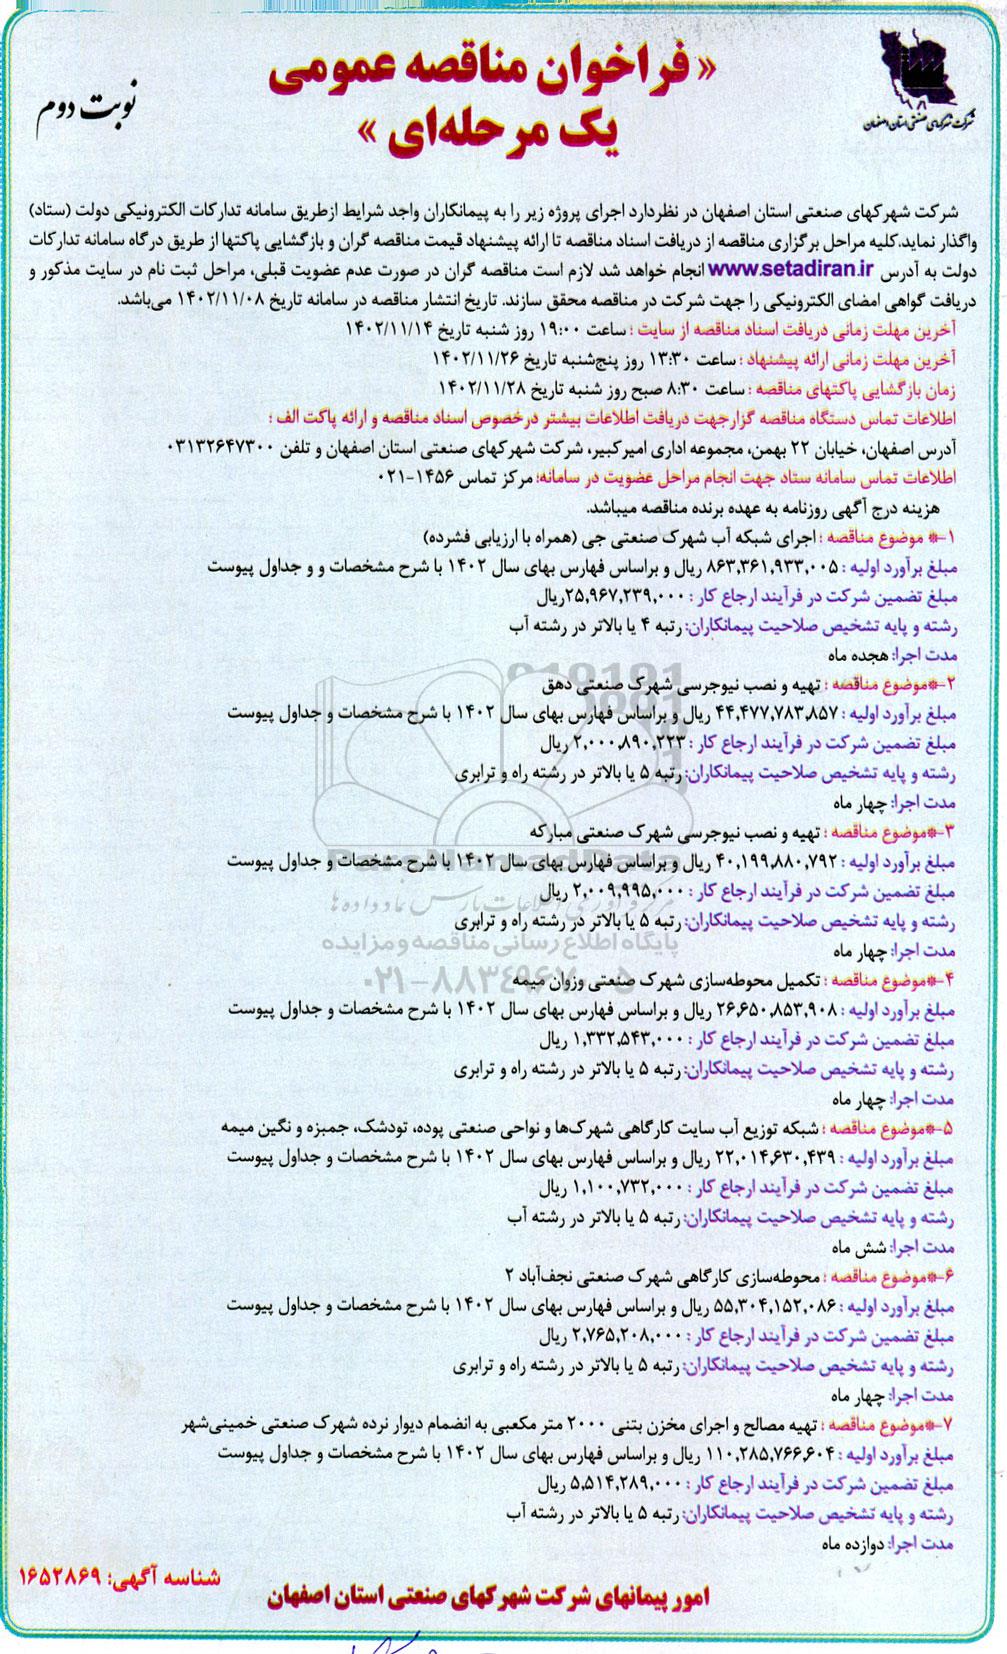 « فراخوان مناقصه عمومی
یک مرحله‌ای »
نوبت دوم
شرکت شهرکهای صنعتی استان اصفهان
شرکت شهرکهای صنعتی استان اصفهان در نظردارد اجرای پروژه زیر را به پیمانکاران واجد شرایط ازطریق سامانه تدارکات الکترونیکی دولت (ستاد)
واگذار نماید.کلیه مراحل برگزاری مناقصه از دریافت اسناد مناقصه تا ارائه پیشنهاد قیمت مناقصه گران و بازگشایی پاکتها از طریق درگاه سامانه تدارکات
دولت به آدرس www.setadiran.ir انجام خواهد شد لازم است مناقصه گران در صورت عدم عضویت قبلی، مراحل ثبت نام در سایت مذکور و
دریافت گواهی امضای الکترونیکی را جهت شرکت در مناقصه محقق سازند. تاریخ انتشار مناقصه در سامانه تاریخ ۱۴۰۲/۱۱/۰۸ می‌باشد.
آخرین مهلت زمانی دریافت اسناد مناقصه از سایت : ساعت ۱۹:۰۰ روز شنبه تاریخ ۱۴۰۲/۱۱/۱۴
آخرین مهلت زمانی ارائه پیشنهاد : ساعت ۱۳:۳۰ روز پنج‌شنبه تاریخ ۱۴۰۲/۱۱/۲۶
زمان بازگشایی پاکتهای مناقصه : ساعت ۸:۳۰ صبح روز شنبه تاریخ ۱۴۰۲/۱۱/۲۸
اطلاعات تماس دستگاه مناقصه گزارجهت دریافت اطلاعات بیشتر درخصوص اسناد مناقصه و ارائه پاکت الف :
آدرس اصفهان، خیابان ۲۲ بهمن، مجموعه اداری امیرکبیر، شرکت شهرکهای صنعتی استان اصفهان و تلفن ۰۳۱۳۲۶۴۷۳۰۰
اطلاعات تماس سامانه ستاد جهت انجام مراحل عضویت در سامانه: مرکز تماس ۱۴۵۶-۰۲۱
هزینه درج آگهی روزنامه به عهده برنده مناقصه میباشد.
۱-* موضوع مناقصه : اجرای شبکه آب شهرک صنعتی جی (همراه با ارزیابی فشرده)
مبلغ برآورد اولیه : ۸۶۳,۳۶۱,۹۳۳,۰۰۵ ریال و براساس فهارس بهای سال ۱۴۰۲ با شرح مشخصات و و جداول پیوست
مبلغ تضمین شرکت در فرآیند ارجاع کار : ۲۵,۹۶۷,۲۳۹,۰۰۰ریال
رشته و پایه تشخیص صلاحیت پیمانکاران: رتبه ۴ یا بالاتر در رشته آب
مدت اجرا: هجده ماه
۲-*موضوع مناقصه : تهیه و نصب نیوجرسی شهرک صنعتی دهق
مبلغ برآورد اولیه : ۴۴,۴۷۷,۷۸۳,۸۵۷ ریال و براساس فهارس بهای سال ۱۴۰۲ با شرح مشخصات و جداول پیوست
مبلغ تضمین شرکت در فرآیند ارجاع کار : ۲,۰۰۰,۸۹۰,۲۲۳ ریال
رشته و پایه تشخیص صلاحیت پیمانکاران: رتبه ۵ یا بالاتر در رشته راه و ترابری
مدت اجرا: چهار ماه
۳-*موضوع مناقصه : تهیه و نصب نیوجرسی شهرک صنعتی مبارکه
مبلغ برآورد اولیه : ۴۰,۱۹۹,۸۸۰,۷۹۲ ریال و براساس فهارس بهای سال ۱۴۰۲ با شرح مشخصات و جداول پیوست
مبلغ تضمین شرکت در فرآیند ارجاع کار : ۲,۰۰۹,۹۹۵,۰۰۰ ریال
رشته و پایه تشخیص صلاحیت پیمانکاران: رتبه ۵ یا بالاتر در رشته راه و ترابری
پایگاه اطلاع رسانی مناقصه و مزایده
مدت اجرا: چهار ماه
۴-*موضوع مناقصه : تکمیل محوطه‌سازی شهرک صنعتی وزوان میمه
مبلغ برآورد اولیه : ۲۶,۶۵۰,۸۵۳,۹۰۸ ریال و براساس فهارس بهای سال ۱۴۰۲ با شرح مشخصات و جداول پیوست
مبلغ تضمین شرکت در فرآیند ارجاع کار : ۱,۳۳۲,۵۴۳,۰۰۰ ریال
رشته و پایه تشخیص صلاحیت پیمانکاران: رتبه ۵ یا بالاتر در رشته راه و ترابری
مدت اجرا: چهار ماه
۵-*موضوع مناقصه : شبکه توزیع آب سایت کارگاهی شهرک‌ها و نواحی صنعتی پوده، تودشک، جمبزه و نگین میمه
مبلغ برآورد اولیه : ۲۲,۰۱۴,۶۳۰,۴۳۹ ریال و براساس فهارس بهای سال ۱۴۰۲ با شرح مشخصات و جداول پیوست
مبلغ تضمین شرکت در فرآیند ارجاع کار : ۱,۱۰۰,۷۳۲,۰۰۰ ریال
رشته و پایه تشخیص صلاحیت پیمانکاران: رتبه ۵ یا بالاتر در رشته آب
مدت اجرا: شش ماه
۶-*موضوع مناقصه : محوطه‌سازی کارگاهی شهرک صنعتی نجف‌آباد ۲
مبلغ برآورد اولیه : ۵۵,۳۰۴,۱۵۲,۰۸۶ ریال و براساس فهارس بهای سال ۱۴۰۲ با شرح مشخصات و جداول پیوست
مبلغ تضمین شرکت در فرآیند ارجاع کار : ۲,۷۶۵,۲۰۸,۰۰۰ ریال
رشته و پایه تشخیص صلاحیت پیمانکاران: رتبه ۵ یا بالاتر در رشته راه و ترابری
مدت اجرا: چهار ماه
۷-*موضوع مناقصه : تهیه مصالح و اجرای مخزن بتنی ۲۰۰۰ متر مکعبی به انضمام دیوار نرده شهرک صنعتی خمینی‌شهر
مبلغ برآورد اولیه : ۱۱۰,۲۸۵,۷۶۶,۶۰۴ ریال و براساس فهارس بهای سال ۱۴۰۲ با شرح مشخصات و جداول پیوست
مبلغ تضمین شرکت در فرآیند ارجاع کار : ۵,۵۱۴,۲۸۹,۰۰۰ ریال
رشته و پایه تشخیص صلاحیت پیمانکاران: رتبه ۵ یا بالاتر در رشته آب
مدت اجرا: دوازده ماه
شناسه آگهی: ۱۶۵۲۸۶۹
امور پیمانهای شرکت شهرکهای صنعتی استان اصفهان